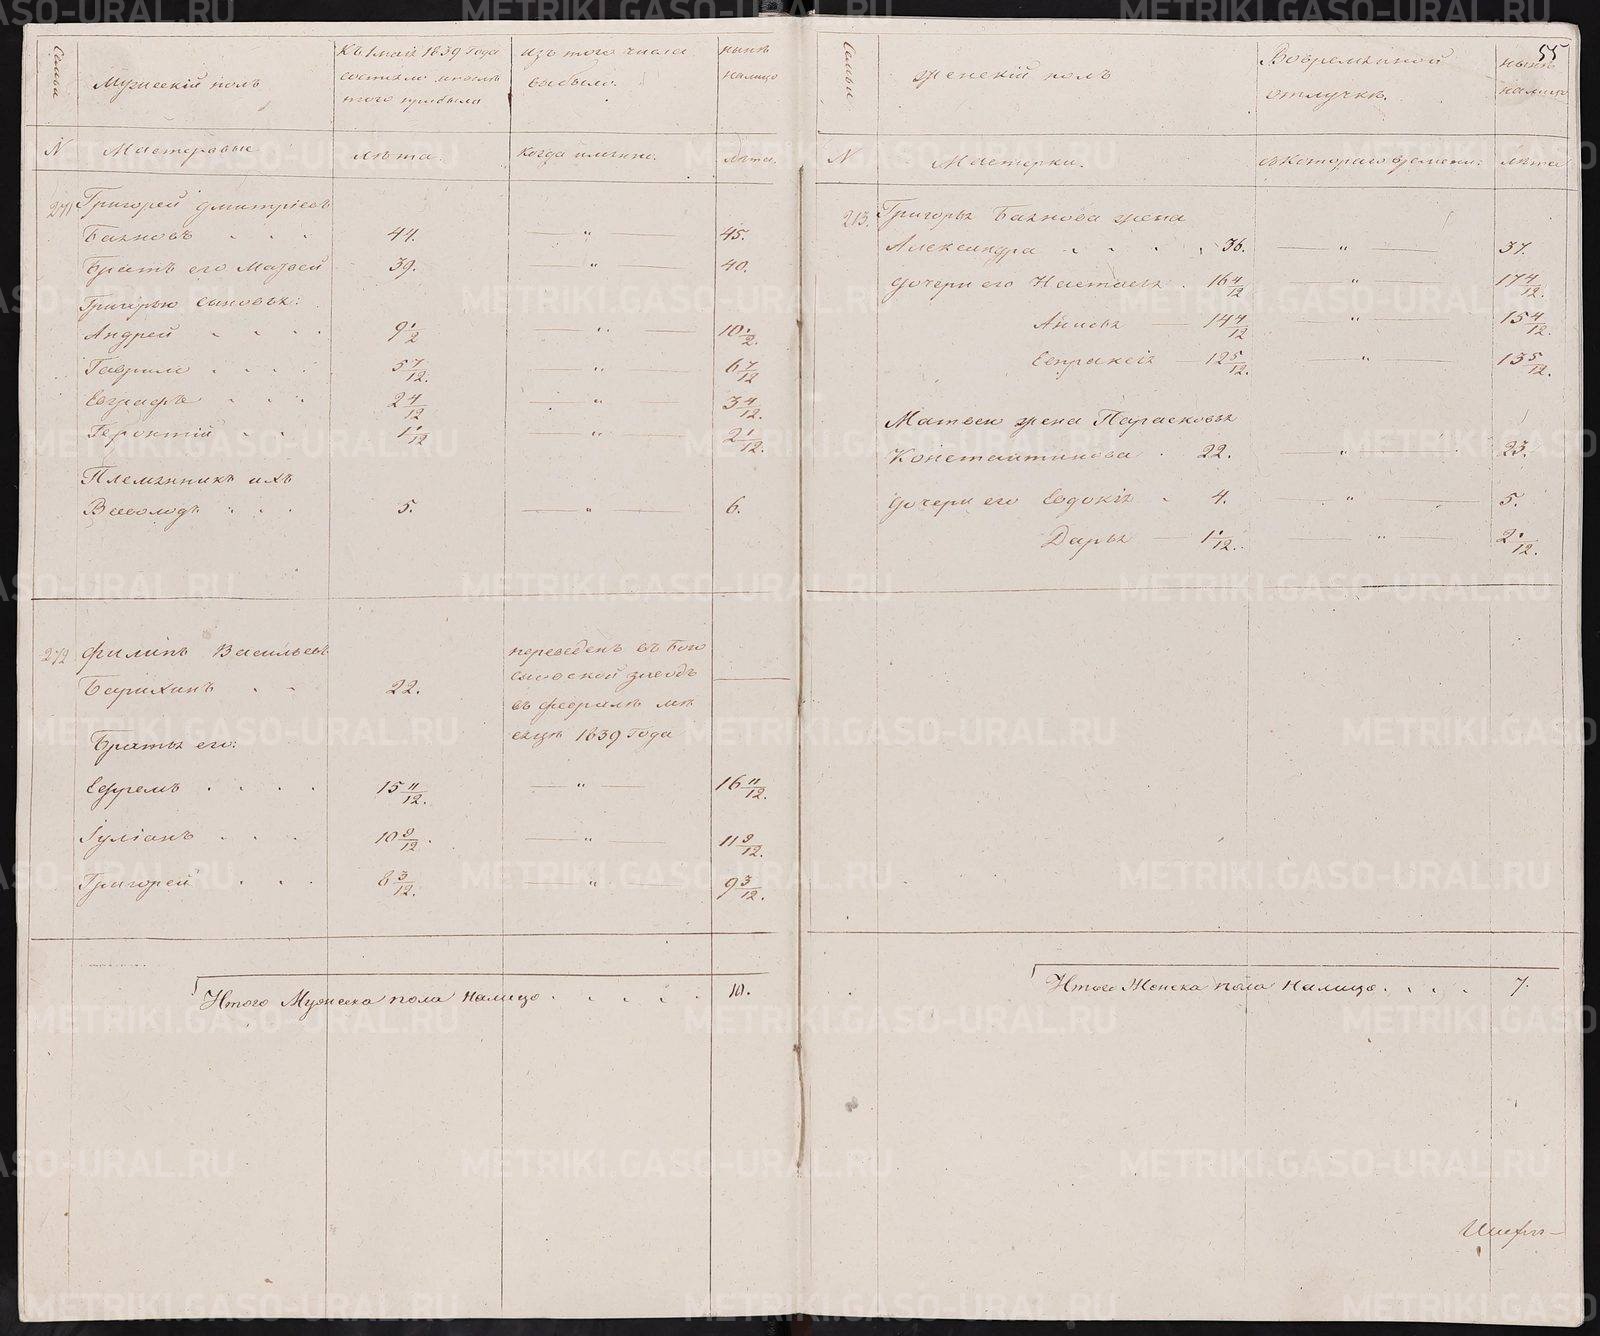 55
Семьи
Мужескій полъ
Къ 1 маія 1839 года
состояло и послѣ
того прибыло
изъ того числа
выбыло.
нынѣ
налицо
N
Мастеровые
лѣта.
когда имянно.
лѣта.
271
Григорей Дмитріевъ
Баяновъ . . . 44. — " — 45.
Братъ его Матвей 39. " — 40.
Григорью сыновья:
Андрей . . . . 9 1/2 " — 10 1/2.
Гаврило . . . . 5 7/12. — " — 6 7/12
Евграфъ . . . 2 4/12 — " — 3 4/12.
Геронтій . . 1 1/12 — " — 2 1/12.
Племянникъ ихъ
Всеволодъ . . . 5. — " — 6.
272
Филипъ Васильевъ
Барихинъ . . 22.
переведенъ въ Бого
словской заводъ
въ февралѣ мѣ
сяцѣ 1839 года
Братья его:
Ефремъ . . . . 15 11/12. — " — 16 11/12.
Іуліанъ . . . 10 9/12. — " — 11 9/12.
Григорей . . . 8 3/12. — " — 9 3/12.
Итого Мужеска пола налицо . . . . . 10.
Семьи
женскій полъ
Вовремянной
отлучкѣ.
нынѣ
налицо
N
Мастерки.
съкотораго времени:
лѣта
213.
Григорья Баянова жена
Александра . . . . 36. — " — 37.
дочери его Настасья . 16 4/12 — " — 17 4/12.
Анисья — 14 4/12 — " — 15 4/12.
Евпраксія — 12 5/12. — " — 13 5/12.
Матвею жена Парасковья
Константинова . 22. — " — 23.
дочери его Евдокія . 4. — " — 5.
Дарья — 1 1/12. — " — 2 1/12.
Итого Женска пола налицо. . . . 7.
METRIKI.GASO-URAL.RU